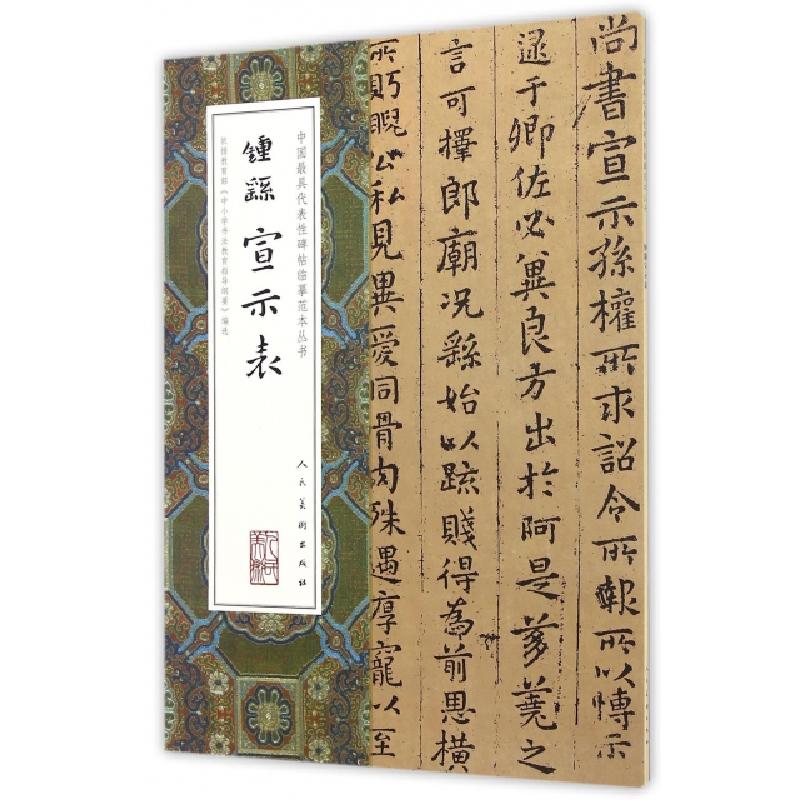 尚書宣示孫權所求詔令所報所以愽示
逮于卿佐必冀良方出於阿是芻蕘之
言可擇郎廟况繇始以疏賤得為前恩橫
所眄睨公私見異愛同骨肉殊遇厚寵以至
中国最具代表性碑帖临摹范本丛书
鍾繇 宣示表
依据教育部《中小学书法教育指导纲要》编选
人民美術出版社